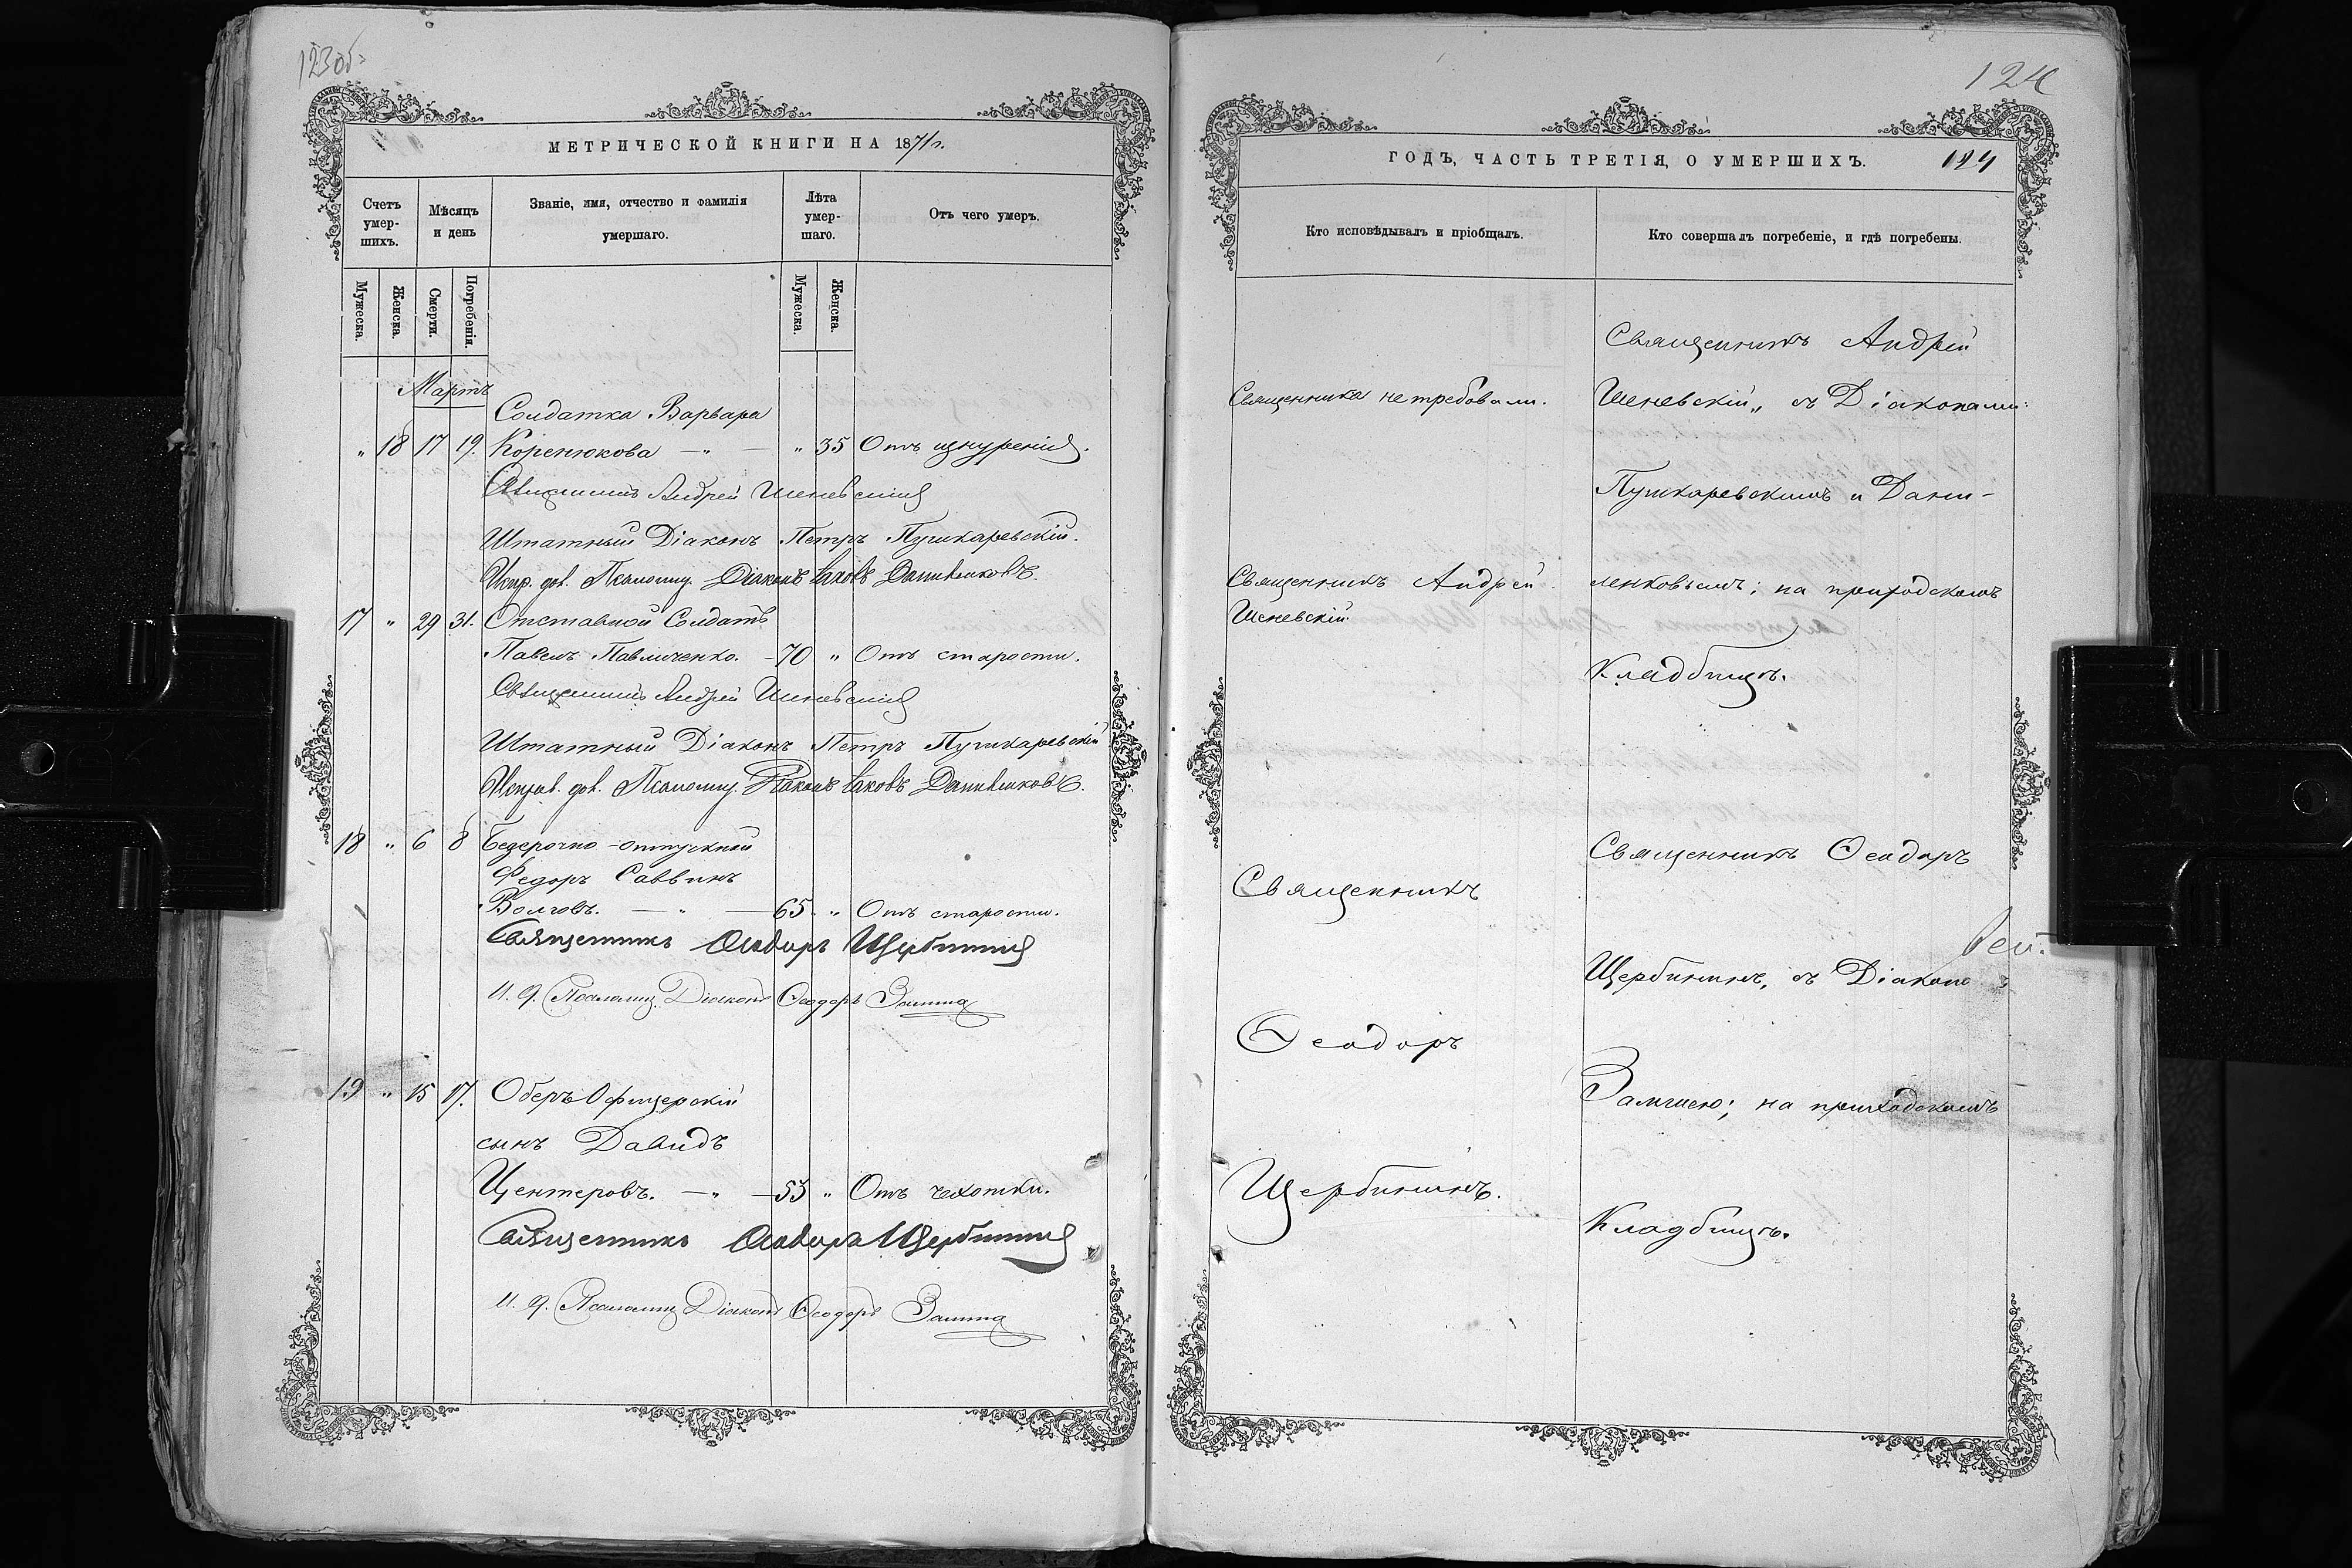 123об.
МЕТРИЧЕСКОЙ КНИГИ НА 1871 г.
Счетъ умер-шихъ.
Мѣсяцъ и день
Званіе, имя, отчество и фамилія умершаго.
Лѣта умер-шаго.
Отъ чего умеръ.
Мужеска. Женска. Смерти. Погребенія. Мужеска. Женска.
Мартъ
Солдатка Варвара
„ 18 17 19. Коренюкова — „ — „ 35 Отъ изнуренія.
Священникъ Андрей Шеневскій
Штатный Діаконъ Петръ Пушкаревскій.
Испр. дол. Псаломщ. Діаконъ Іаковъ Даниленковъ.
17 „ 29 31. Отставной Солдатъ
Павелъ Павличенко. — 70 „ Отъ старости.
Священникъ Андрей Шеневскій
Штатный Діаконъ Петръ Пушкаревскій
Исправ. дол. Псаломщ. Діаконъ Іаковъ Даниленковъ.
18 „ 6 8 Безсрочно-отпускной
Федоръ Саввинъ
Волговъ. — „ — 65. „ Отъ старости.
Священникъ Ѳеодоръ Щербининъ
И. д. Псаломщ. Діаконъ Ѳеодоръ
19 „ 15 17. Оберъ Офицерскій
сынъ Давидъ
Центеровъ. — „ — 53 „ Отъ чахотки.
Священникъ Ѳеодоръ Щербининъ
И. д. Псаломщ Діаконъ Ѳеодоръ
124
ГОДЪ, ЧАСТЬ ТРЕТІЯ, О УМЕРШИХЪ. 124
Кто исповѣдывалъ и пріобщалъ.
Кто совершалъ погребеніе, и гдѣ погребены.
Священникъ Андрей
Священника не требовали.
Шеневскій„ съ Діаконами:
Пушкаревскимъ и Дани-
Священникъ Андрей
ленковымъ; на приходскомъ
Шеневскій.
Кладбищѣ.
Священникъ Ѳеодоръ
Священникъ
Щербининъ, съ Діаконо
Ѳеодоръ
на приходскомъ
Щербининъ.
Кладбищѣ.